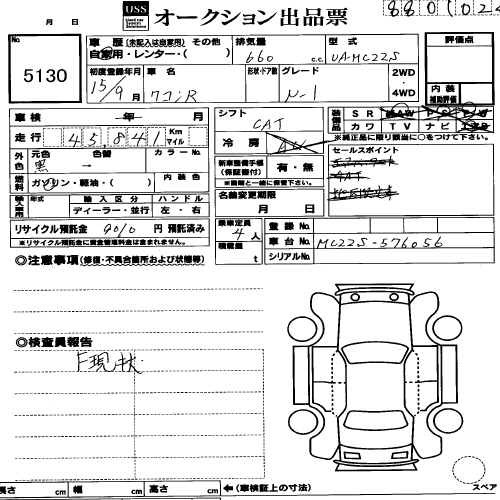 月 日 USS オークション出品票 8801024
No. 車 歴 (未記入は自家用) その他 排気量 型 式 評価点
5130 自家用・レンター・( ) 660 c.c. UA-MC22S
初度登録年月 車 名 形状・ドア数 グレード 2WD 内 装
15/9 月 ワゴンR N-1 4WD 補助評価
車 検 年 月 シフト CAT 装備品 S R
走 行 45,841 Km マイル 冷 房 カ ワ T V ナ ビ
※純正品に限り類価に○をつけて下さい
外色 元色 色替 カラー No. 新車整備手帳 (保証書付) 有・無 セールスポイント
黒 →
燃料 ガソリン・軽油・( ) 内 装 色 ※車検証と一緒に保管下さい
年式 輸 入 区 分 ハ ン ド ル 名義変更期限
ディーラー・並行 左 ・ 右 月 日
リサイクル預託金 9010 円 預託済み 乗車定員 4 人 登 録 No.
※リサイクル預託金に資金管理料金は含まれません 積載量 t 車 台 No. MC22S-576056
◎注意事項(修復・不具合箇所および状態等) シリアルNo.
◎検査員報告
F現状
長さ cm 幅 cm 高さ cm ←(車検証上の寸法) スペア